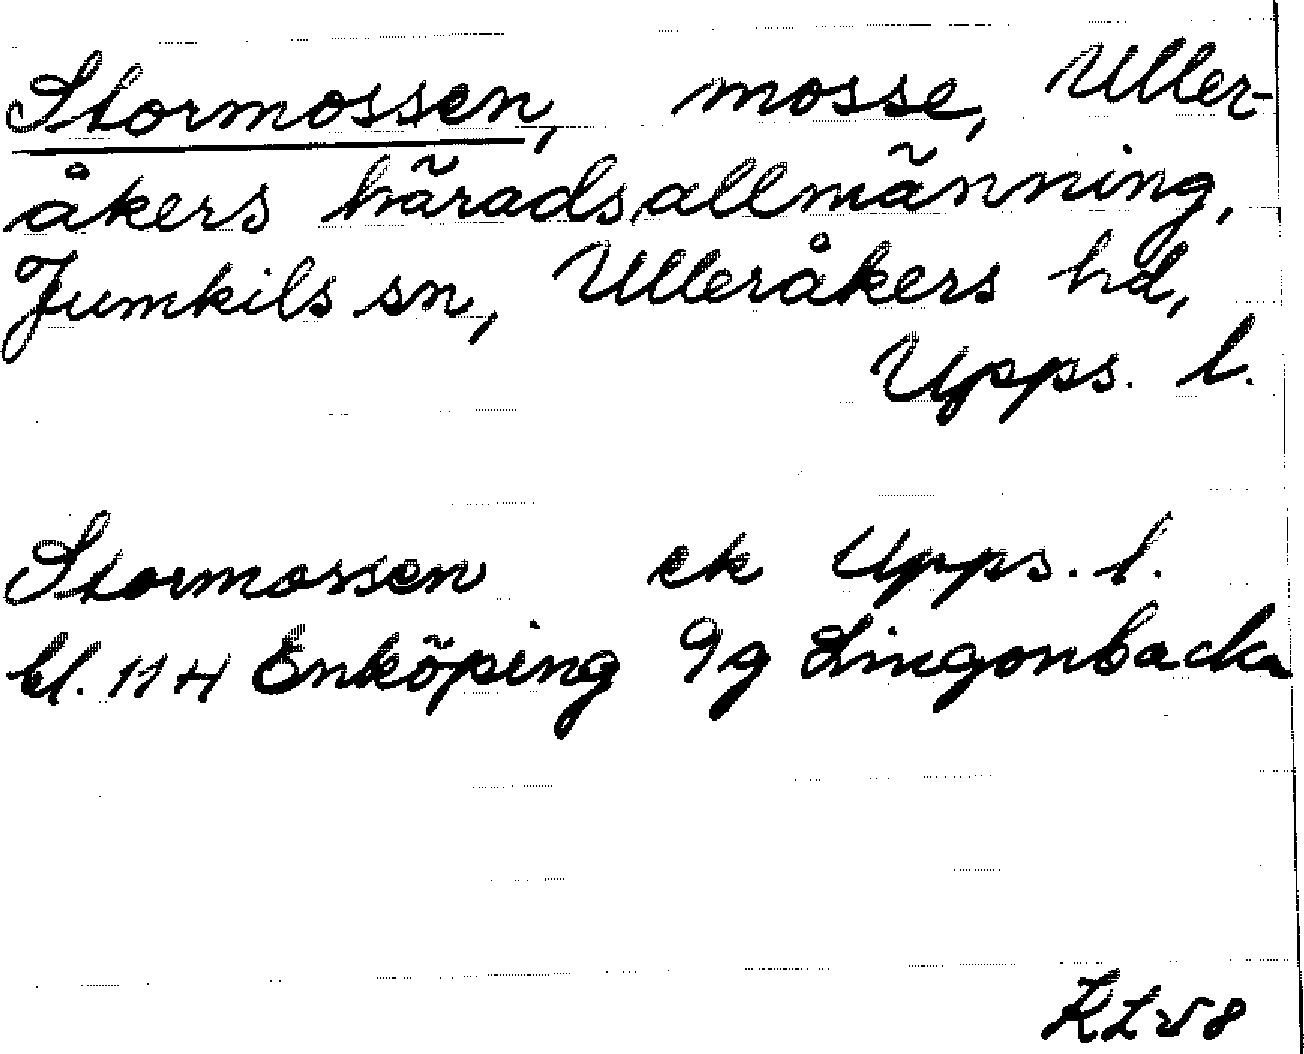 Stormossen, mosse, Uller-
åkers häradsallmänning,
Jumkils sn, Ulleråkers hd,
Upps. l.
Stormossen ek Upps. l.
bl. 11H Enköping 9g Lingonbacka
KL58